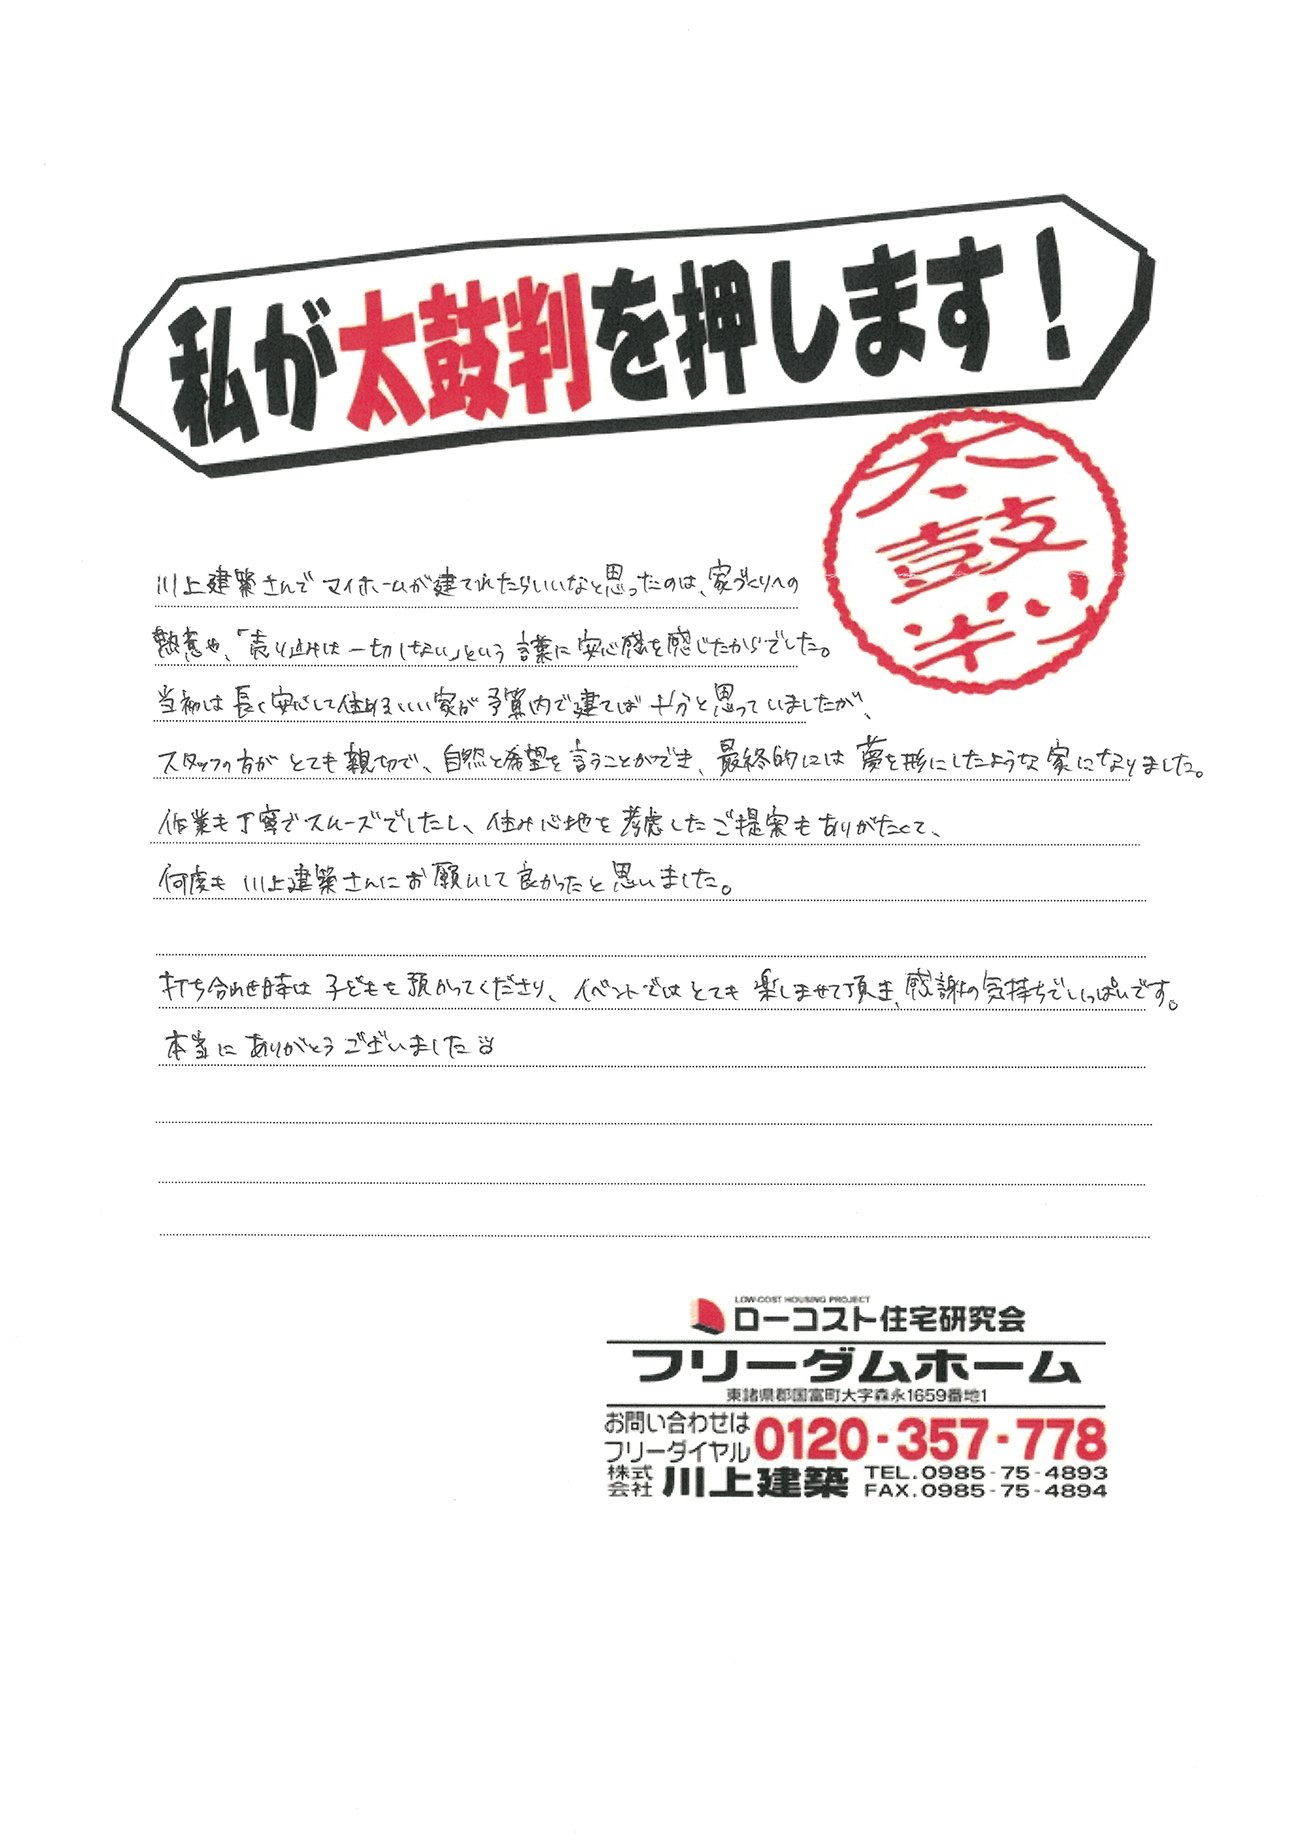 私が太鼓判を押します！
太
鼓
判
川上建築さんでマイホームが建てれたらいいなと思ったのは、家づくりへの
熱意や、「売り込みは一切しない」という言葉に安心感を感じたからでした。
当初は長く安心して住めるいい家が予算内で建てば十分と思っていましたが、
スタッフの方がとても親切で、自然と希望を言うことができ、最終的には夢を形にしたような家になりました。
作業も丁寧でスムーズでしたし、住み心地を考慮したご提案もありがたくて、
何度も川上建築さんにお願いして良かったと思いました。
打ち合わせ時は子どもを預かってくださり、イベントではとても楽しませて頂き、感謝の気持ちでいっぱいです。
本当にありがとうございました
LOW-COST HOUSING PROJECT
ローコスト住宅研究会
フリーダムホーム
東諸県郡国富町大字森永1659番地1
お問い合わせは
フリーダイヤル 0120-357-778
株式会社 川上建築 TEL.0985-75-4893
FAX.0985-75-4894